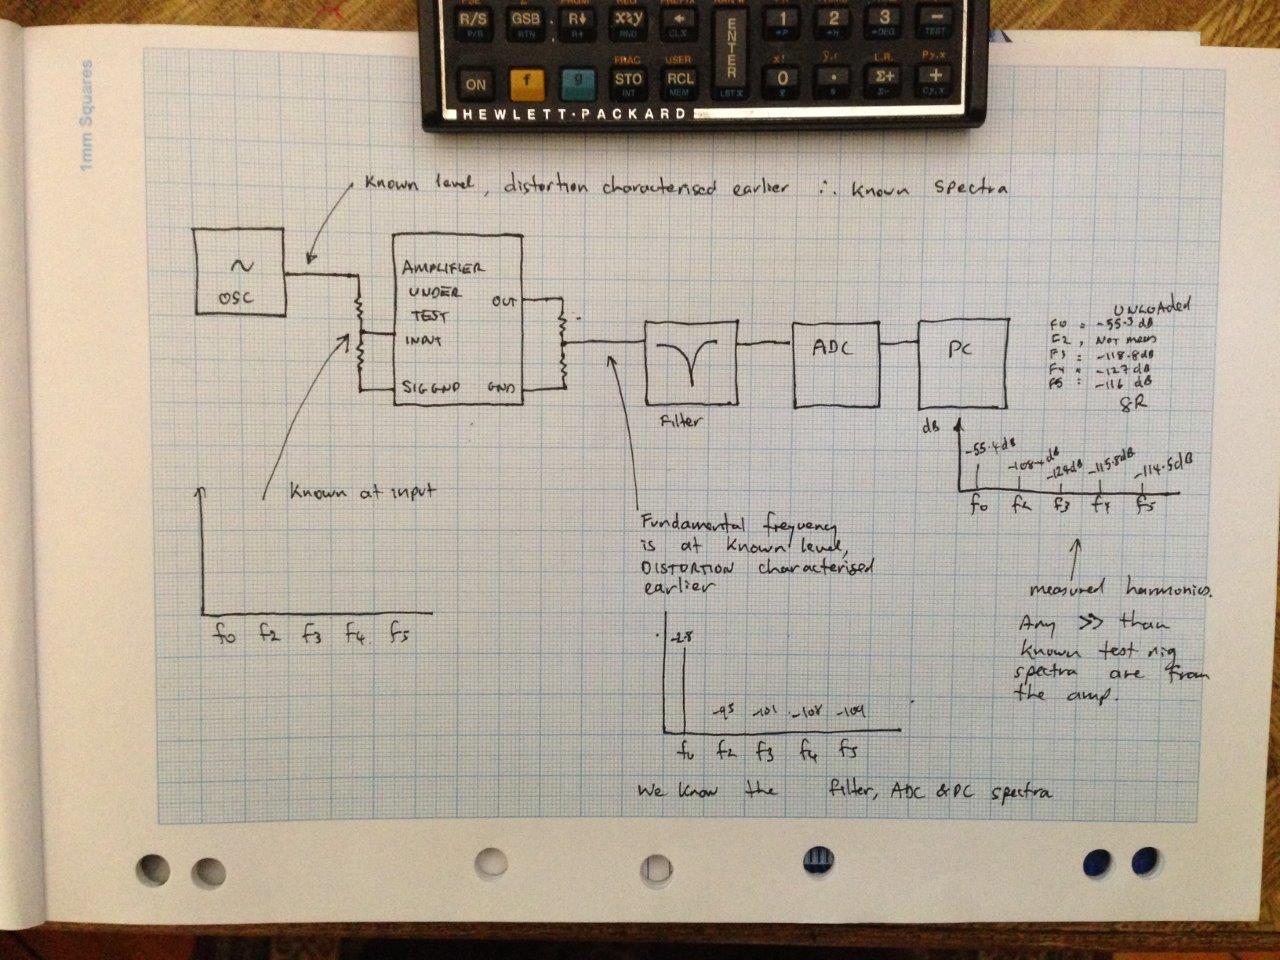 R/S GSB R↓ x≷y ← 1 2 3 −
P/R RTN R↑ RND CLX →P →H →DEG TEST
ENTER
FRAC USER x! ŷ,r L.R. Py,x
ON f g STO RCL 0 · Σ+ +
INT MEM LSTX x̄ s Σ- Cy,x
HEWLETT·PACKARD
1mm Squares
Known level, distortion characterised earlier ∴ known spectra
~
OSC
AMPLIFIER
UNDER
TEST
INPUT
OUT
SIG GND GND
Filter
ADC
PC
UNLOADED
F0 = -55.3 dB
F2 , Not meas
F3 = -118.8dB
F4 = -127 dB
F5 : -116 dB
8R
dB
-55.4dB -108.4dB -124dB -115.8dB -114.5dB
f0 f2 f3 f4 f5
Known at input
f0 f2 f3 f4 f5
Fundamental frequency
is at known level,
DISTORTION characterised
earlier
-28
-95 -101 -108 -109
f0 f2 f3 f4 f5
We know the filter, ADC & PC spectra
measured harmonics.
Any >> than
known test rig
spectra are from
the amp.